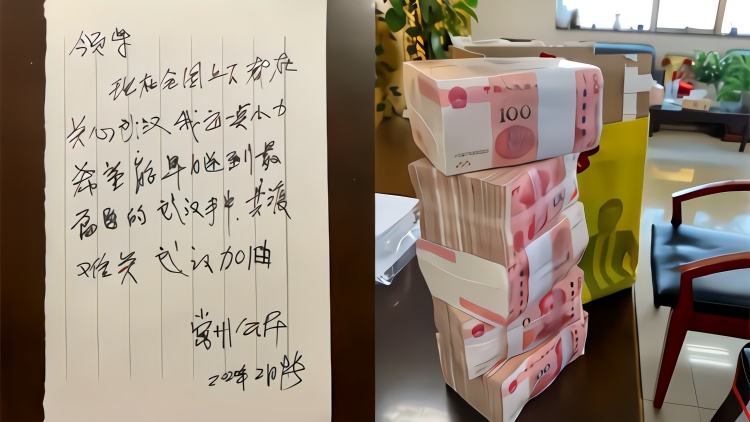 领导
现在全国上下都在
关心武汉 我这点小力
希望能早日送到最
前面的武汉手中.共渡
难关 武汉加油
常州公民
2020年2月
100
100